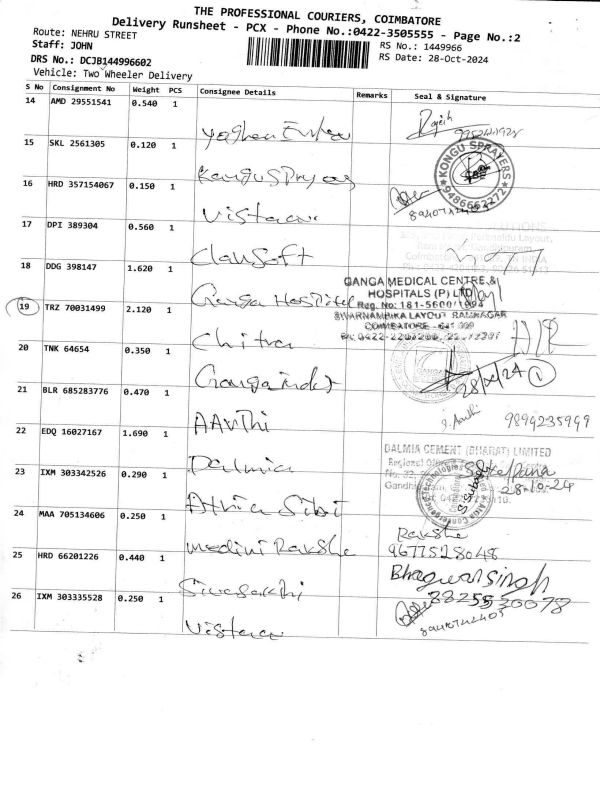 THE PROFESSIONAL COURIERS, COIMBATORE
Delivery Runsheet - PCX - Phone No.:0422-3505555 - Page No.:2
Route: NEHRU STREET
RS No.: 1449966
Staff: JOHN
RS Date: 28-Oct-2024
DRS No.: DCJB144996602
Vehicle: Two Wheeler Delivery
S No Consignment No Weight PCS Consignee Details Remarks Seal & Signature
14 AMD 29551541 0.540 1
Rajesh
15 SKL 2561305 0.120 1
KONGU SPRAYERS
9486662272
16 HRD 357154067 0.150 1 Vistaar
17 DPI 389304 0.560 1 Clausoft
18 DDG 398147 1.620 1 Ganga Hospital
GANGA MEDICAL CENTRE &
HOSPITALS (P) LTD
Reg. No: 181-5600/1994
SWARNAMBIKA LAYOUT RAMNAGAR
COIMBATORE - 641 009
19 TRZ 70031499 2.120 1 Chitra
20 TNK 64654 0.350 1
28/10/24 1
21 BLR 685283776 0.470 1 AAnthi
9894235949
22 EDQ 16027167 1.690 1 Dalmia
DALMIA CEMENT (BHARAT) LIMITED
28-10-24
23 IXM 303342526 0.290 1 Athia Sibi
24 MAA 705134606 0.250 1 Medini Rakshe
Rakshe
9677528048
25 HRD 66201226 0.440 1 Sivasakthi
Bhagwansingh
8825530078
26 IXM 303335528 0.250 1 Vistaar